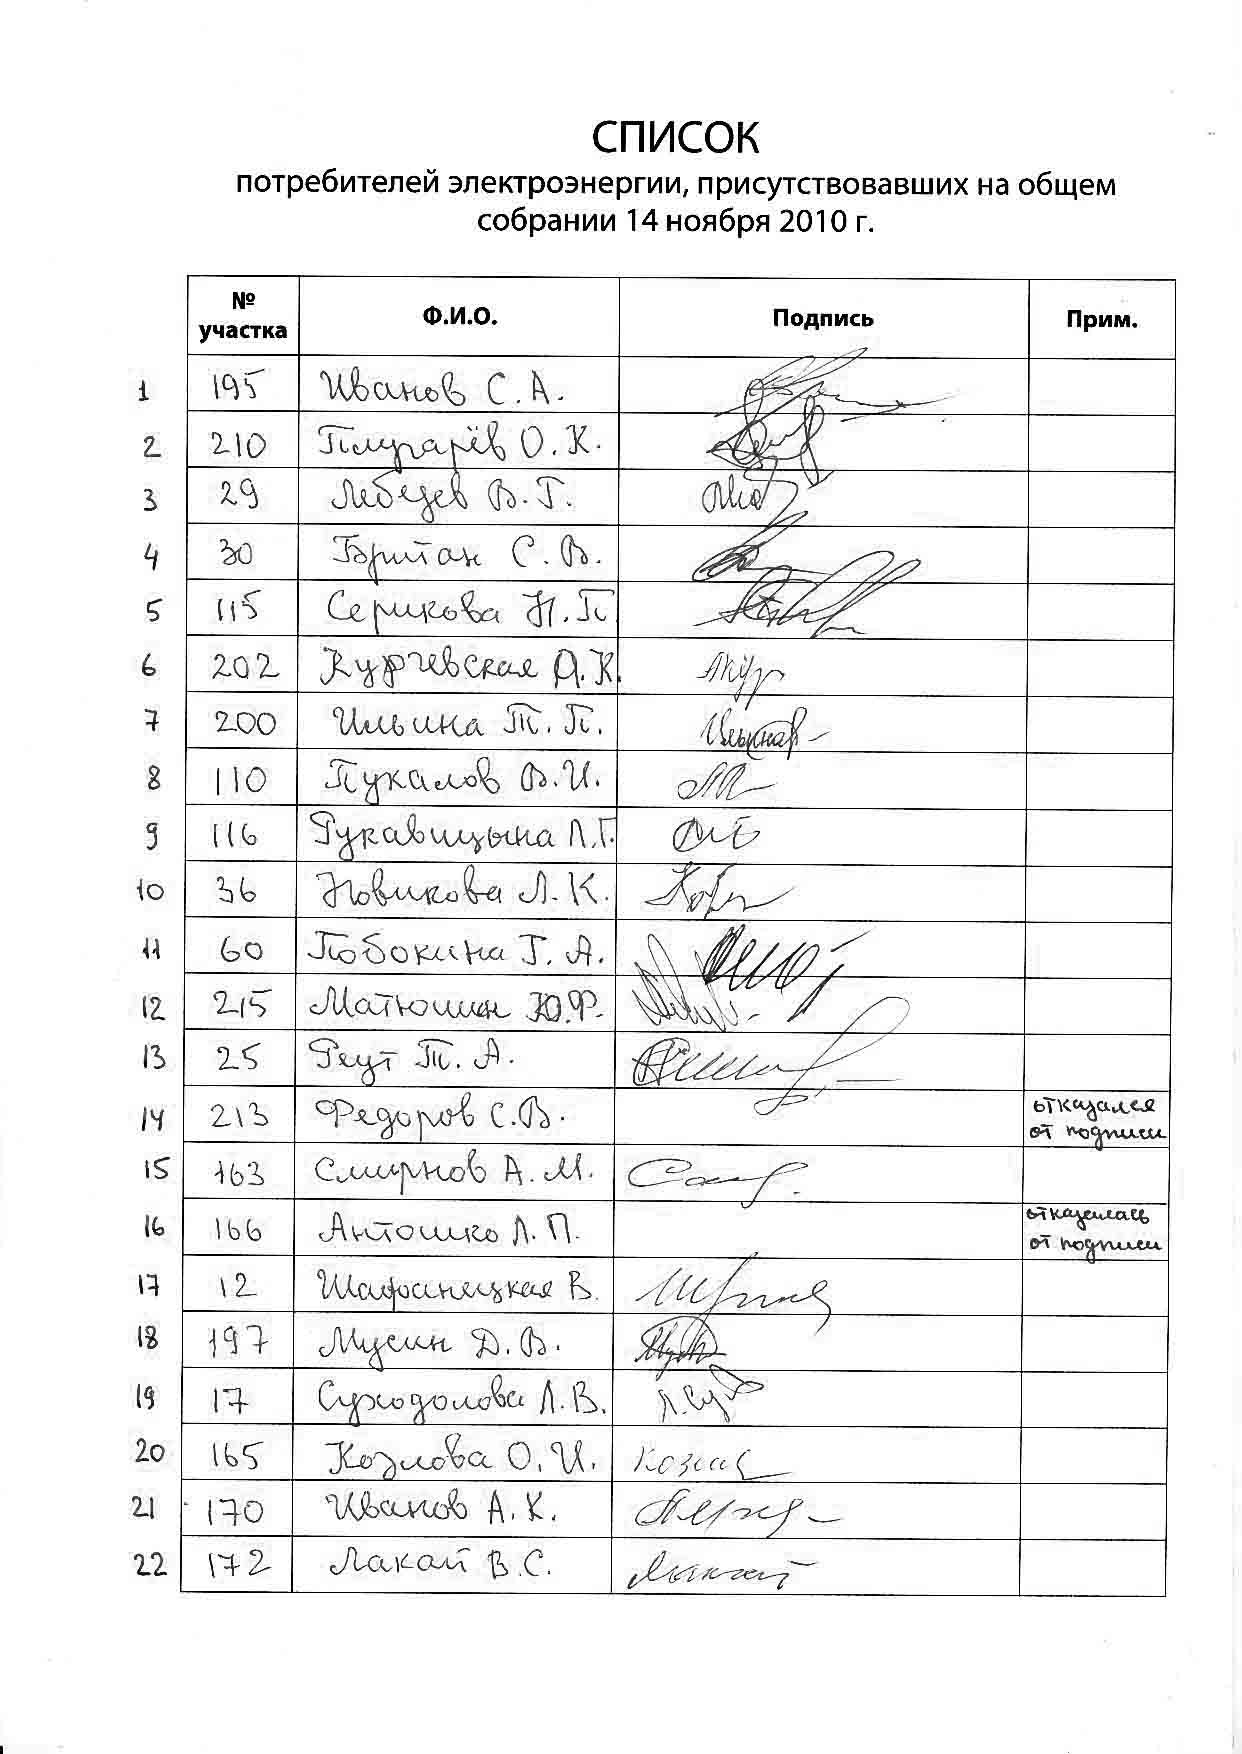 СПИСОК
потребителей электроэнергии, присутствовавших на общем
собрании 14 ноября 2010 г.
№ участка Ф.И.О. Подпись Прим.
1 195 Иванов С.А.
2 210 О.К.
3 29 Лебедев В.Г.
4 30 Британ С.В.
5 115 Серикова Н.П.
6 202 Курчевская А.К.
7 200 Ильина Т.П.
8 110 Пукалов В.И.
9 116 Рукавицына Л.Г.
10 36 Новикова Л.К.
11 60 Побокина Г.А.
12 215 Матюшин Ю.Ф.
13 25 Реут Т.А.
14 213 Федоров С.В. отказался
от подписи
15 163 Смирнов А.М.
16 166 Антошко Л.П. отказалась
от подписи
17 12 Шафранецкая В.
18 197 Мусин Д.В.
19 17 Суходолова Л.В.
20 165 Козлова О.И.
21 170 Иванов А.К.
22 172 Лакай В.С.